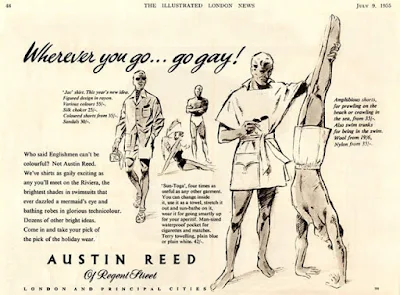 44
THE ILLUSTRATED LONDON NEWS
JULY 9, 1955
Wherever you go... go gay!
'Jac' shirt. This year's new idea.
Figured design in rayon.
Various colours 55/-.
Silk choker 25/-.
Coloured shorts from 50/-.
Sandals 50/-.
Amphibious shorts,
for prowling on the
beach or crowding in
the sea, from 35/-.
Also swim trunks
for being in the swim.
Wool from 19/6,
Nylon from 35/-.
Who said Englishmen can't be
colourful? Not Austin Reed.
We've shirts as gaily exciting as
any you'll meet on the Riviera, the
brightest shades in swimsuits that
ever dazzled a mermaid's eye and
bathing robes in glorious technicolour.
Dozens of other bright ideas.
Come in and take your pick of
the pick of the holiday wear.
'Sun-Toga', four times as
useful as any other garment.
You can change inside
it, use it as a towel, stretch it
out and sun-bathe on it,
wear it for going smartly up
for your aperitif. Man-sized
waterproof pocket for
cigarettes and matches.
Terry towelling, plain blue
or plain white. 42/-.
AUSTIN REED
Of Regent Street
LONDON AND PRINCIPAL CITIES